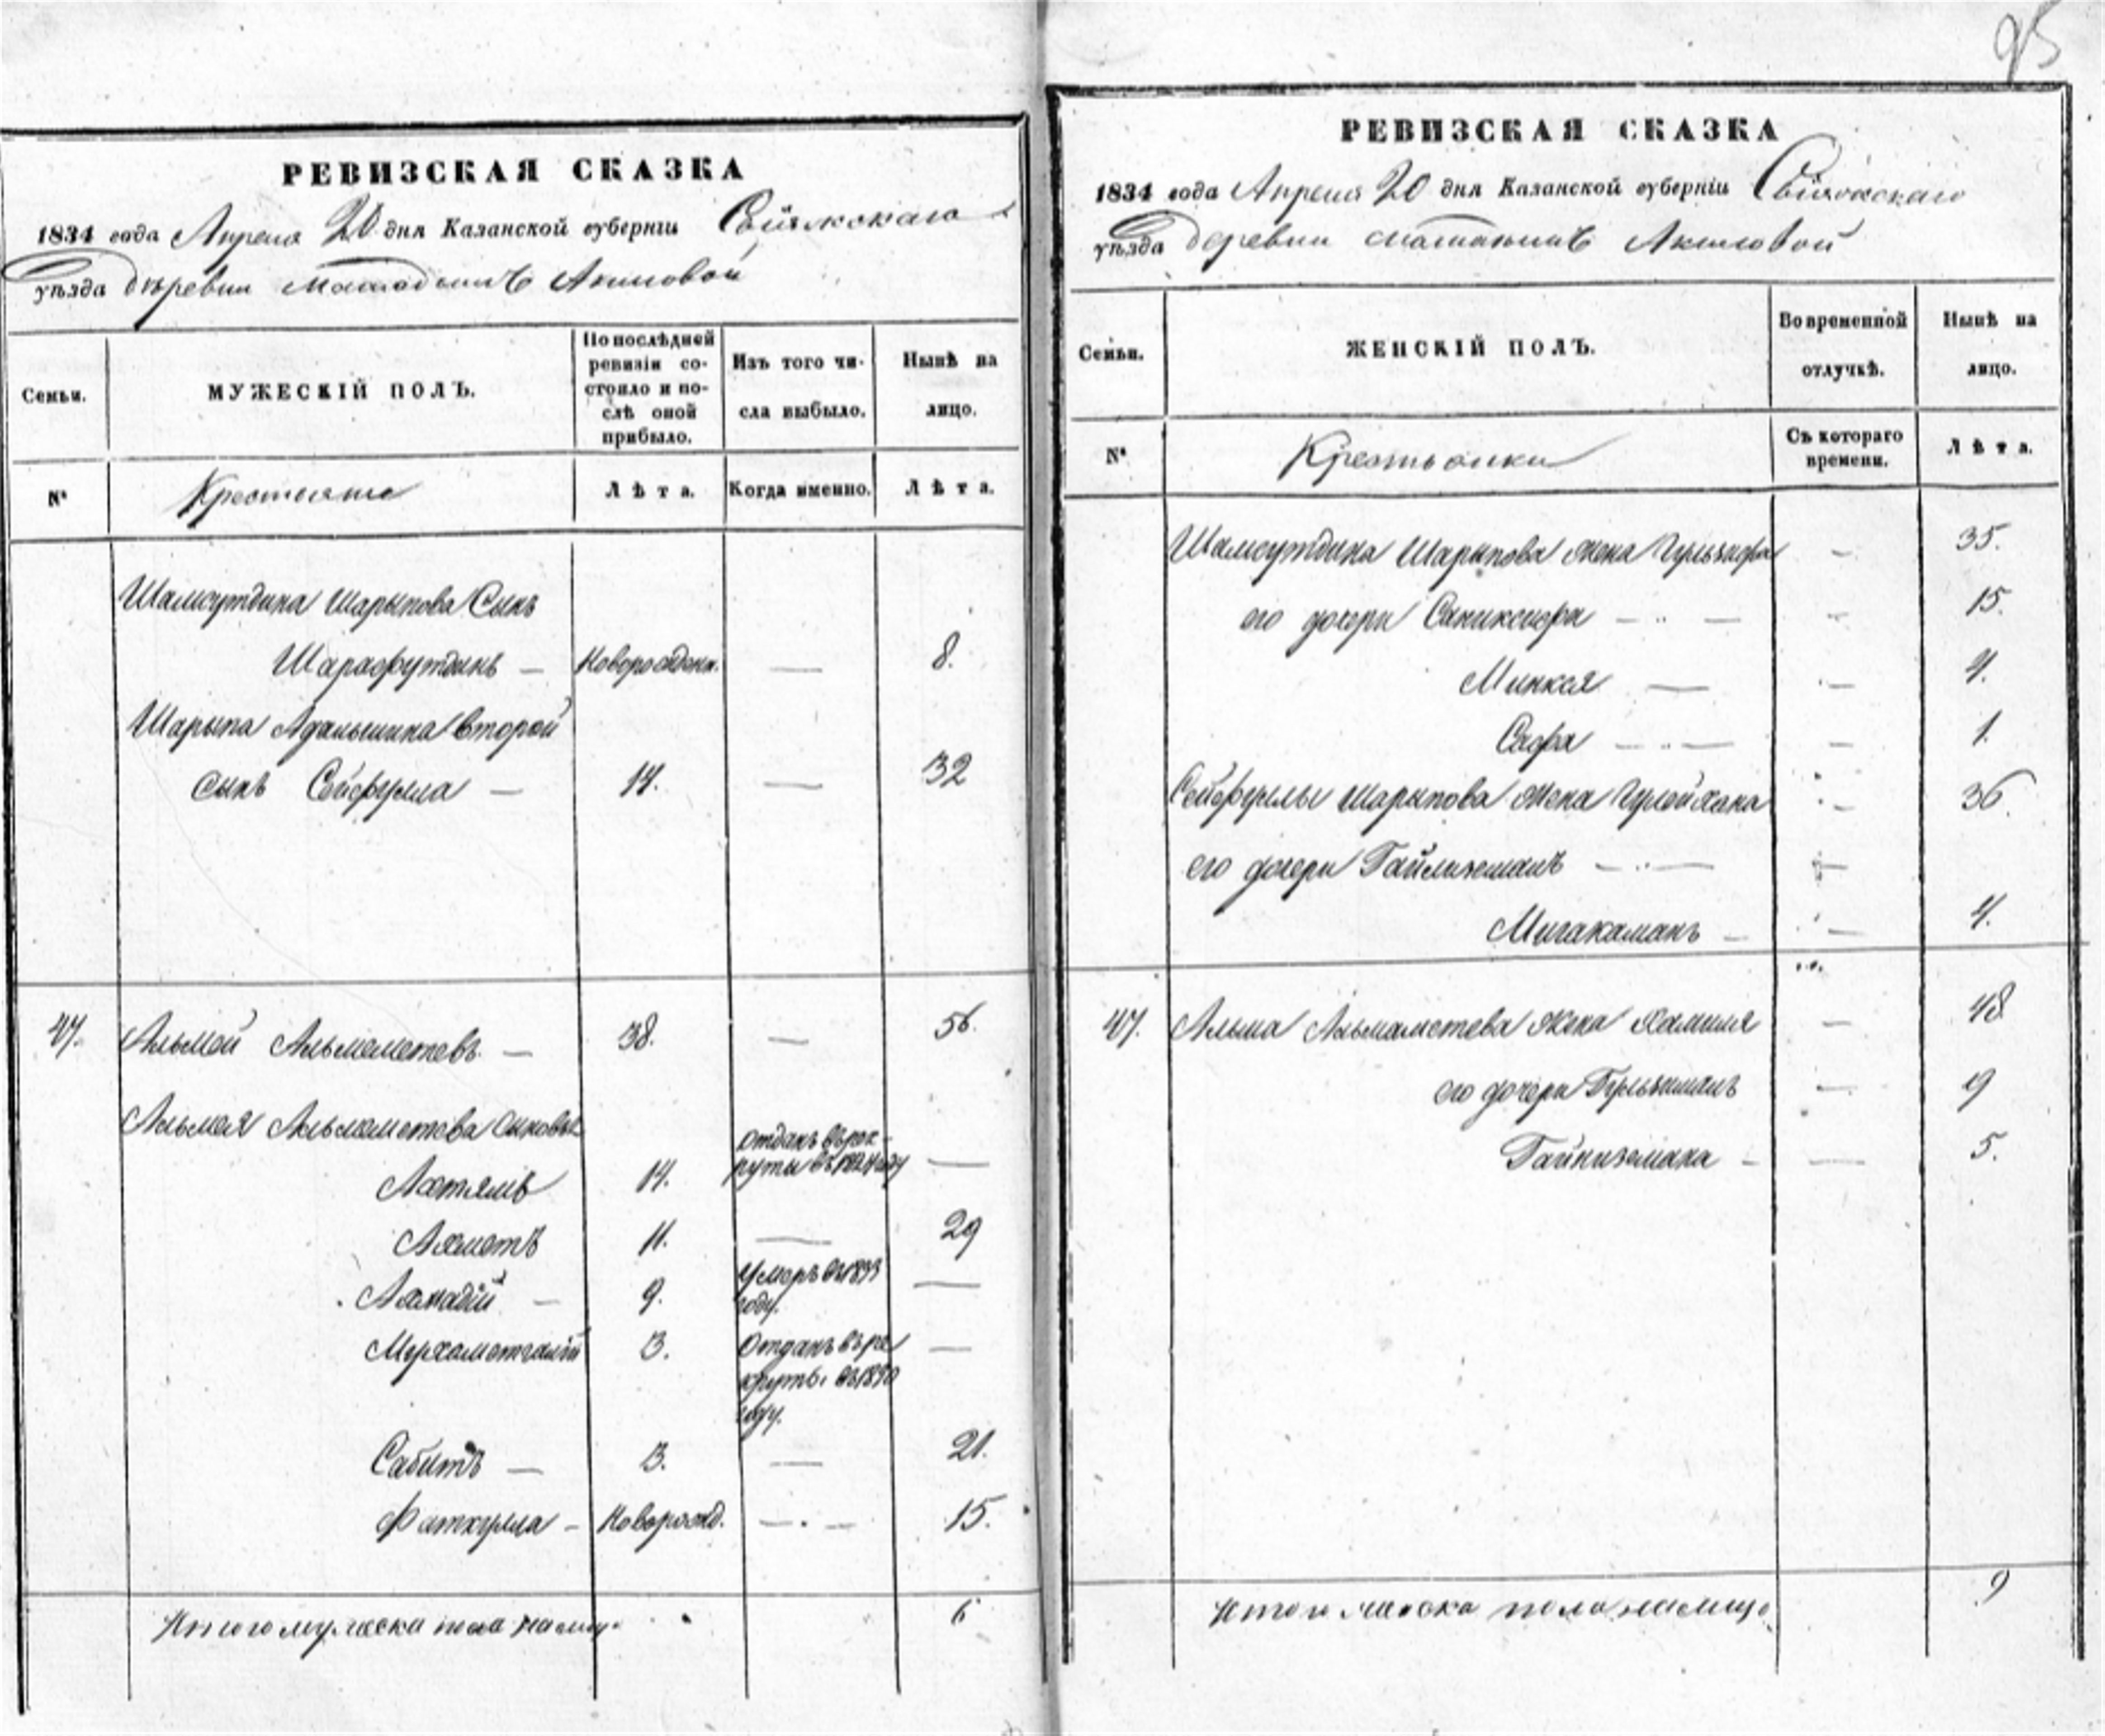 95
РЕВИЗСКАЯ СКАЗКА
1834 года Апреля 20 дня Казанской губернiи Свiяжскаго
уѣзда деревни Акиловой
Семьи.
МУЖЕСКIЙ ПОЛЪ.
По послѣдней
ревизiи со-
стояло и по-
слѣ оной
прибыло.
Изъ того чи-
сла выбыло.
Нынѣ на
лицо.
№
Крестьяне
Лѣта.
Когда именно.
Лѣта.
Шамсутдина Шарыпова Сынъ
Шарафутдинъ — Новорожден. — 8.
Шарыпа второй
сынъ Сейфулла — 14. — 32
47. Альмей Альмаметевъ — 38. — 56.
Альмея Альмаметева сыновья
Ахтямъ 14. Отданъ в рек-
руты въ 1824 году —
Ахметъ 11. — 29
Ахмадiй — 9. Умеръ въ 1833
году. —
Мухаметгалiй 3. Отданъ въ ре
круты въ 1830
году. —
Сабитъ — 3. — 21.
Фаткулла — Новорожд. — 15.
Итого мужеска пола на лицо 6
РЕВИЗСКАЯ СКАЗКА
1834 года Апреля 20 дня Казанской губернiи Свiяжскаго
уѣзда деревни Акиловой
Семьи.
ЖЕНСКIЙ ПОЛЪ.
Во временной
отлучкѣ.
Нынѣ на
лицо.
№
Крестьянки
Съ котораго
времени.
Лѣта.
Шамсутдина Шарыпова жена Гульзифа — 35.
его дочери — 15.
Минкая — 4.
Сафа — 1.
Сейфуллы Шарыпова жена — 36.
его дочери —
— 4.
47. Альмея Альмаметева жена Хамиля — 48
его дочери Гульзиманъ — 9
Гайнизямана — 5.
Итого женска пола на лицо 9